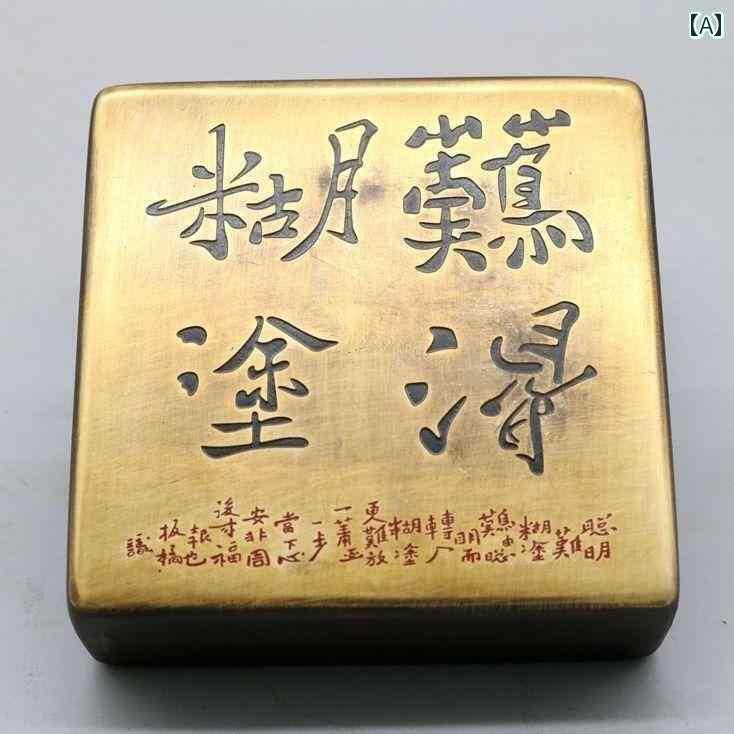 【A】
難得
糊塗
聰明
難
糊塗
難由聰
明而
轉入
糊塗
更難放
一
一步
當下心
安非圖
後 福
報也
板橋
識